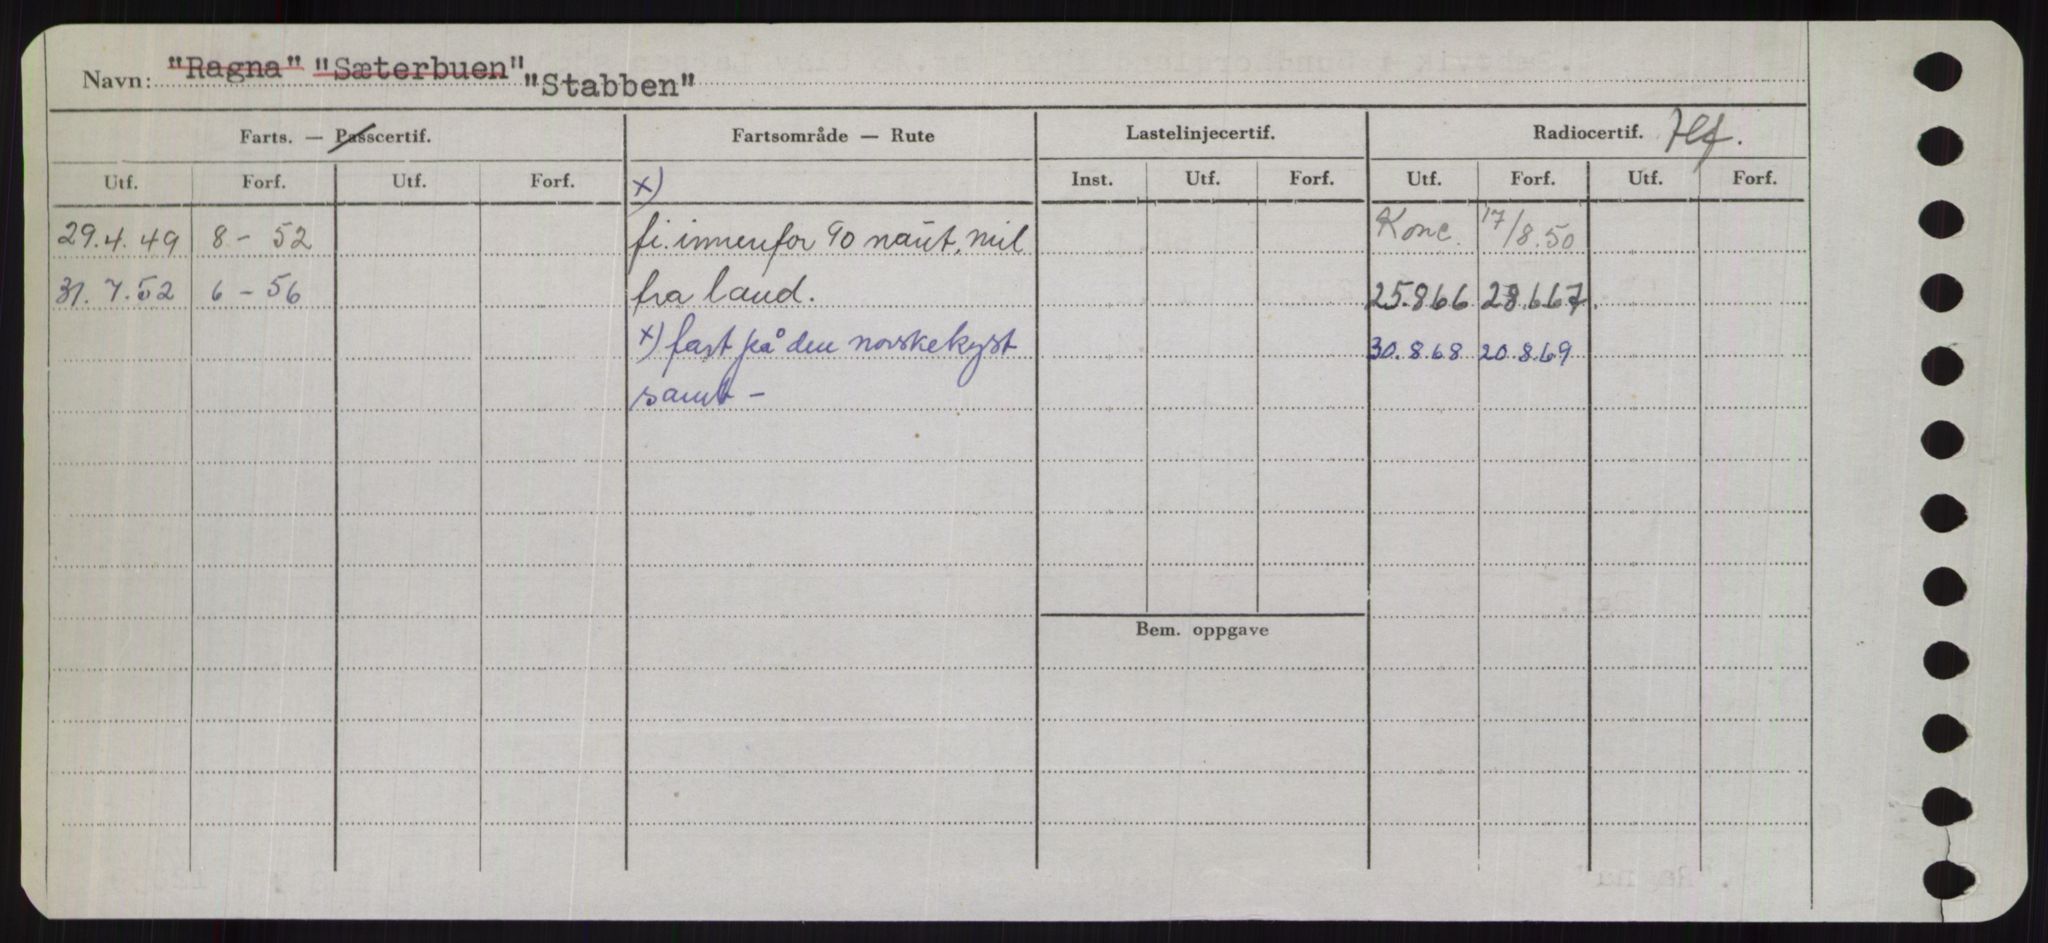 Navn: "Ragna" "Sæterbuen" "Stabben"
Farts. — Passcertif. Fartsområde — Rute Lastelinjecertif. Radiocertif. Tlf.
Utf. Forf. Utf. Forf. x) Inst. Utf. Forf. Utf. Forf. Utf. Forf.
29.4.49 8 - 52 fi. innenfor 90 naut. mil Konc. 17/8.50
31.7.52 6 - 56 fra land. 25.8.66 28.6.67.
x) fast på den norskekyst 30.8.68 20.8.69
samt -
Bem. oppgave